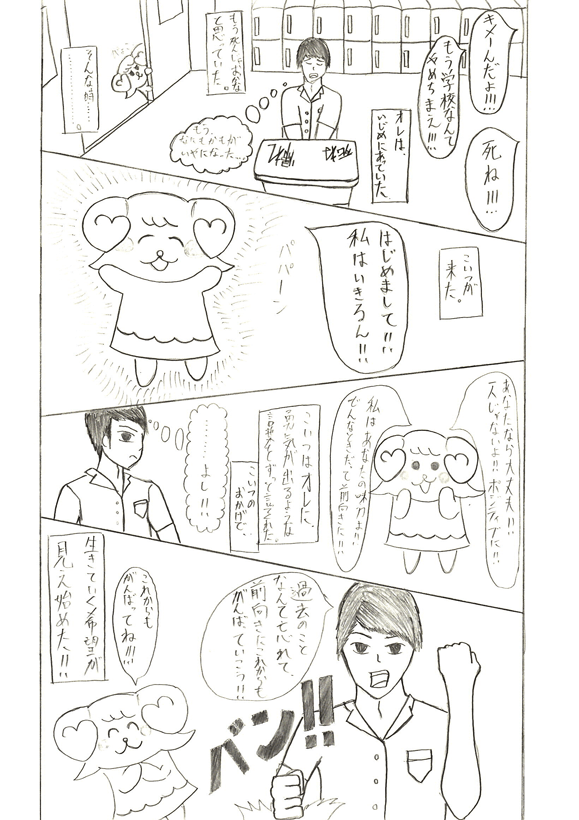 キメーんだよ!!!
もう学校なんて
やめちまえ!!!
死ね!!!
オレは、
いじめにあっていた。
もう、
なにもかもが
いやになった…。
もう死んじゃおかな
と思っていた。
そんな時……
こいつが
来た。
はじめまして!!
私はいきるん!!!
パパーン
あなたなら大丈夫!!!
一人じゃないよ!! ポジティブに!!
私はあなたの味方よ!!
どんなときだって前向きに!!!
こいつはオレに、
勇気が出るような
言葉をずっと言ってくれた。
こいつの
おかげで、
………よし!!
過去のこと
なんて忘れて、
前向きにこれからも
がんばっていこう!!
バン!!
これからも
がんばってね!!!
生きていく希望が
見え始めた!!!